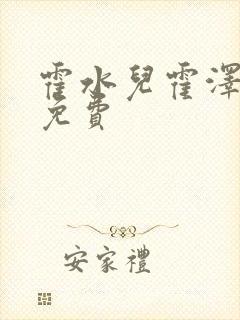 霍水兒霍澤
免費
安家禮